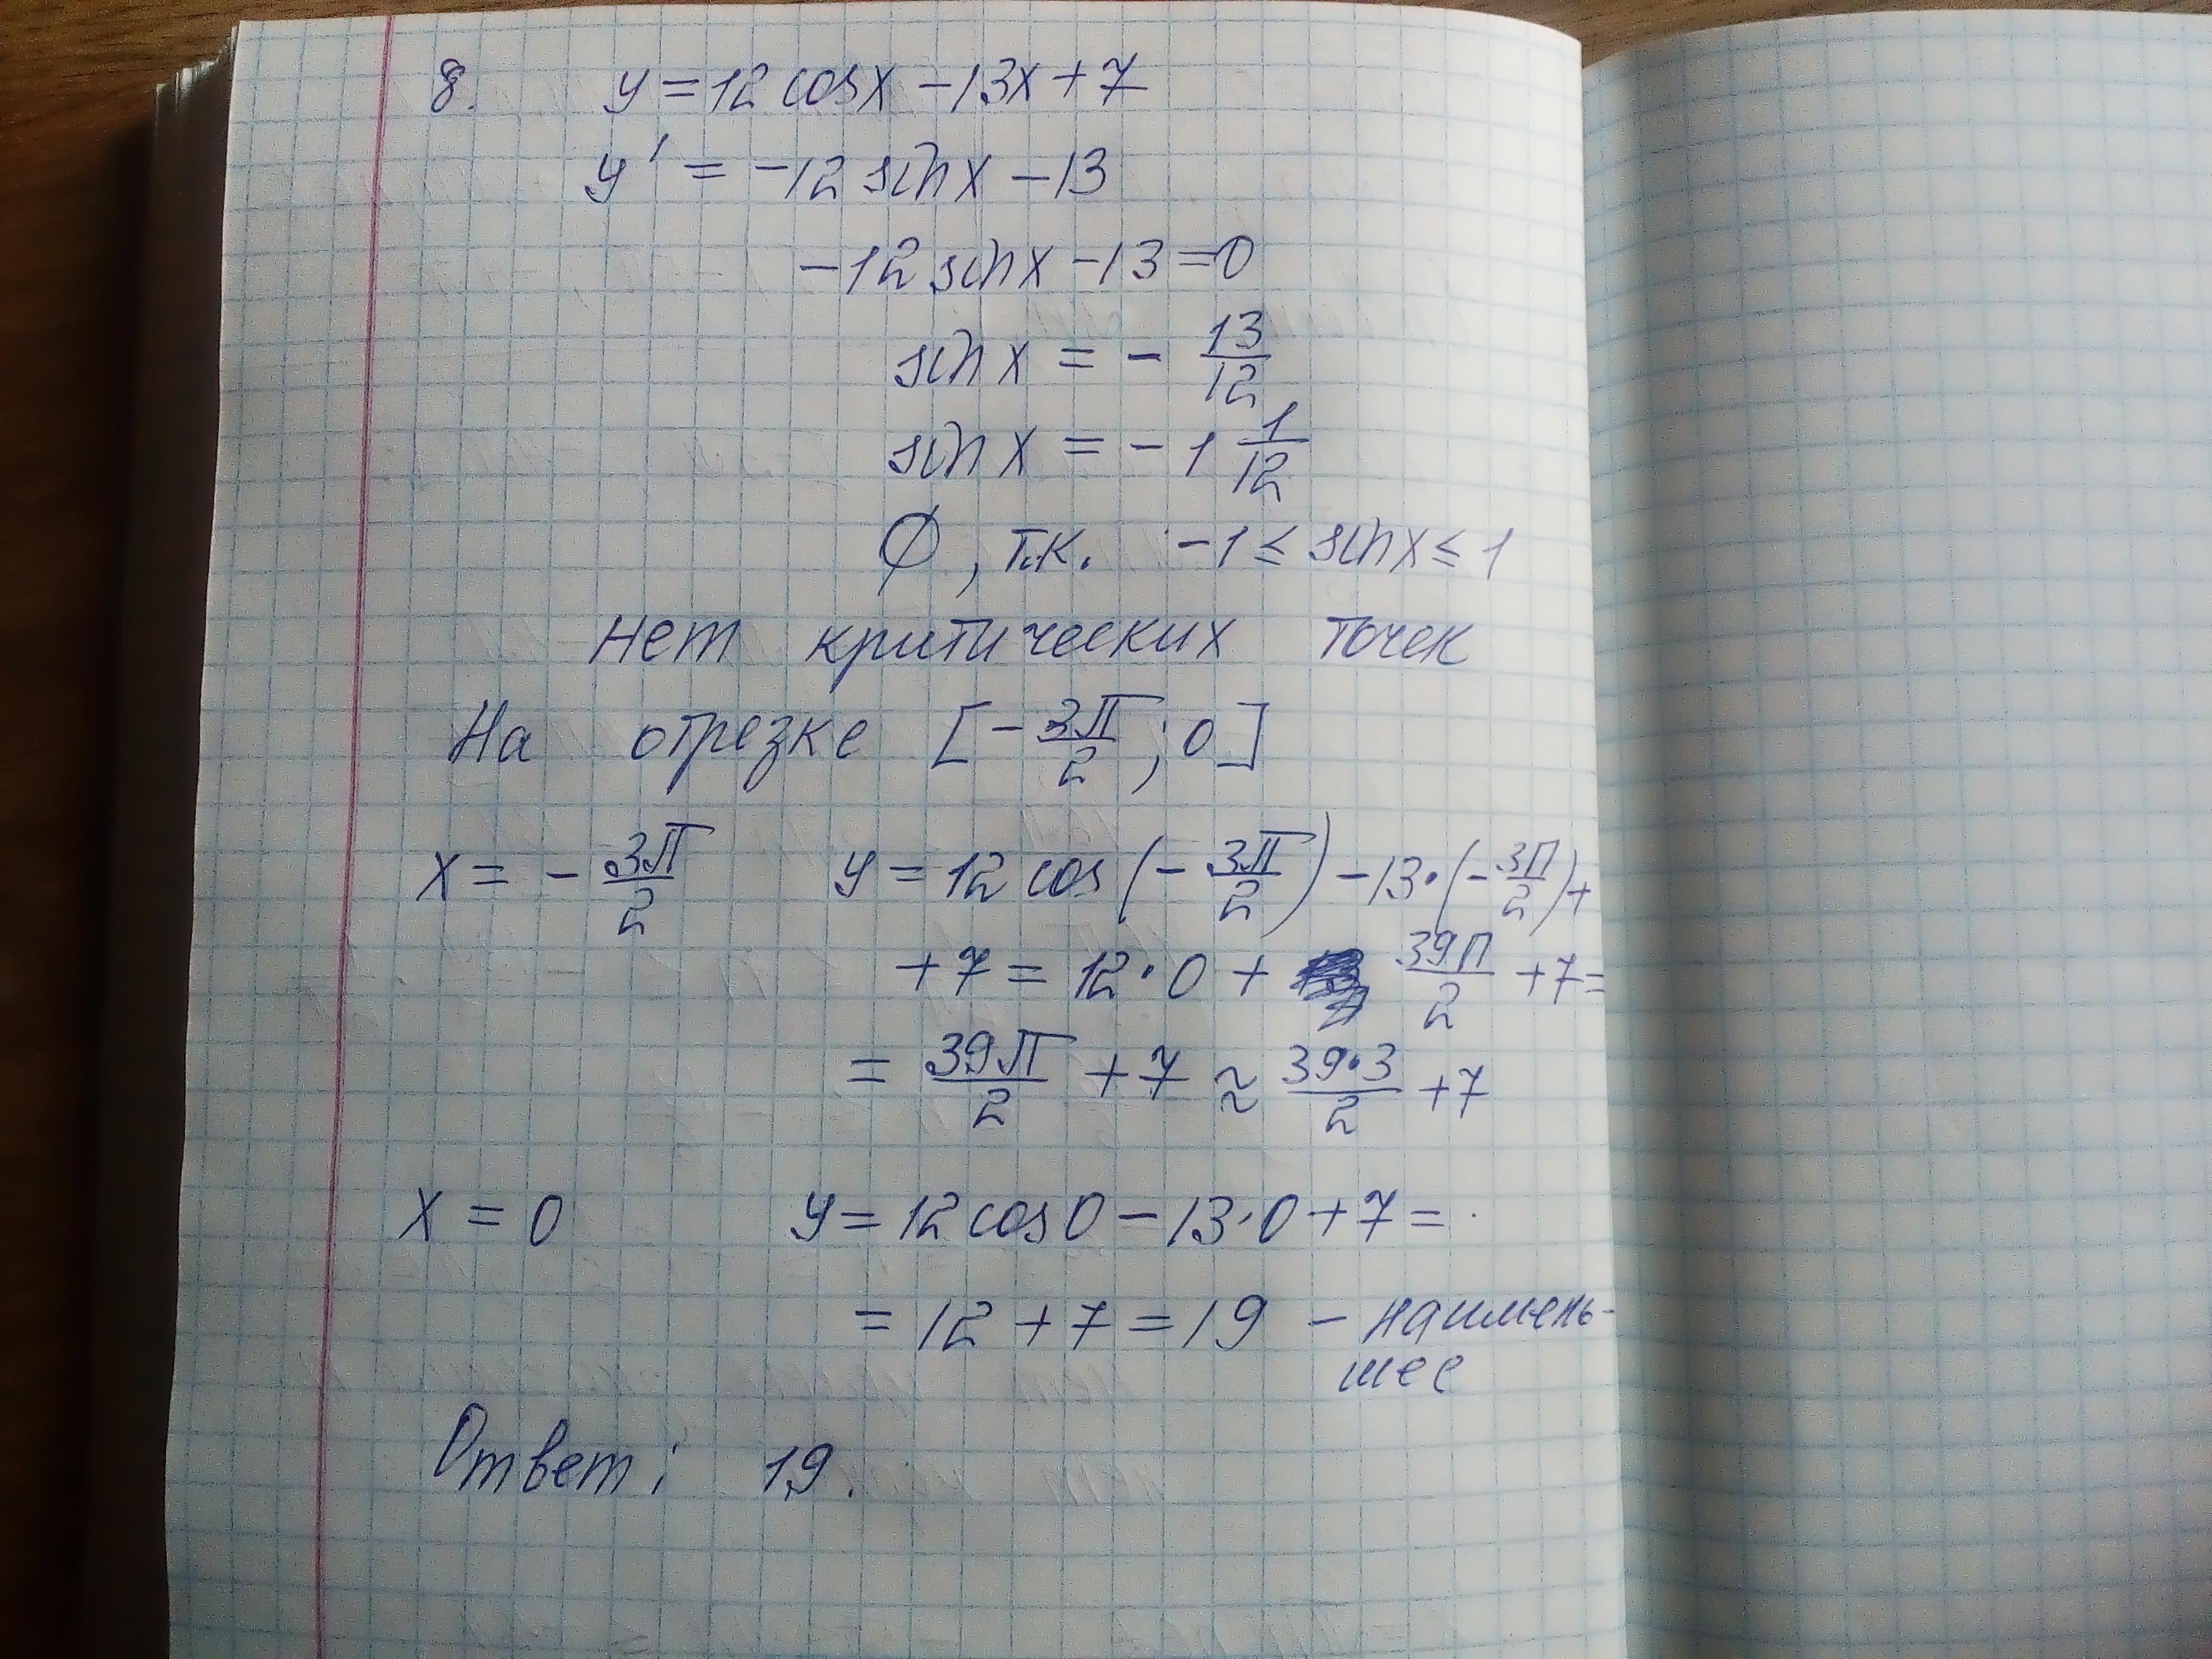 8. y = 12 cos x - 13x + 7
y' = -12 sin x - 13
-12 sin x - 13 = 0
sin x = - 13/12
sin x = - 1 1/12
∅, т.к. -1 ≤ sin x ≤ 1
нет критических точек
На отрезке [- 3π/2; 0]
x = - 3π/2 y = 12 cos (- 3π/2) - 13 · (- 3π/2) +
+ 7 = 12 · 0 + 39π/2 + 7 =
= 39π/2 + 7 ≈ 39·3/2 + 7
x = 0 y = 12 cos 0 - 13 · 0 + 7 =
= 12 + 7 = 19 - наимень-
шее
Ответ: 19.